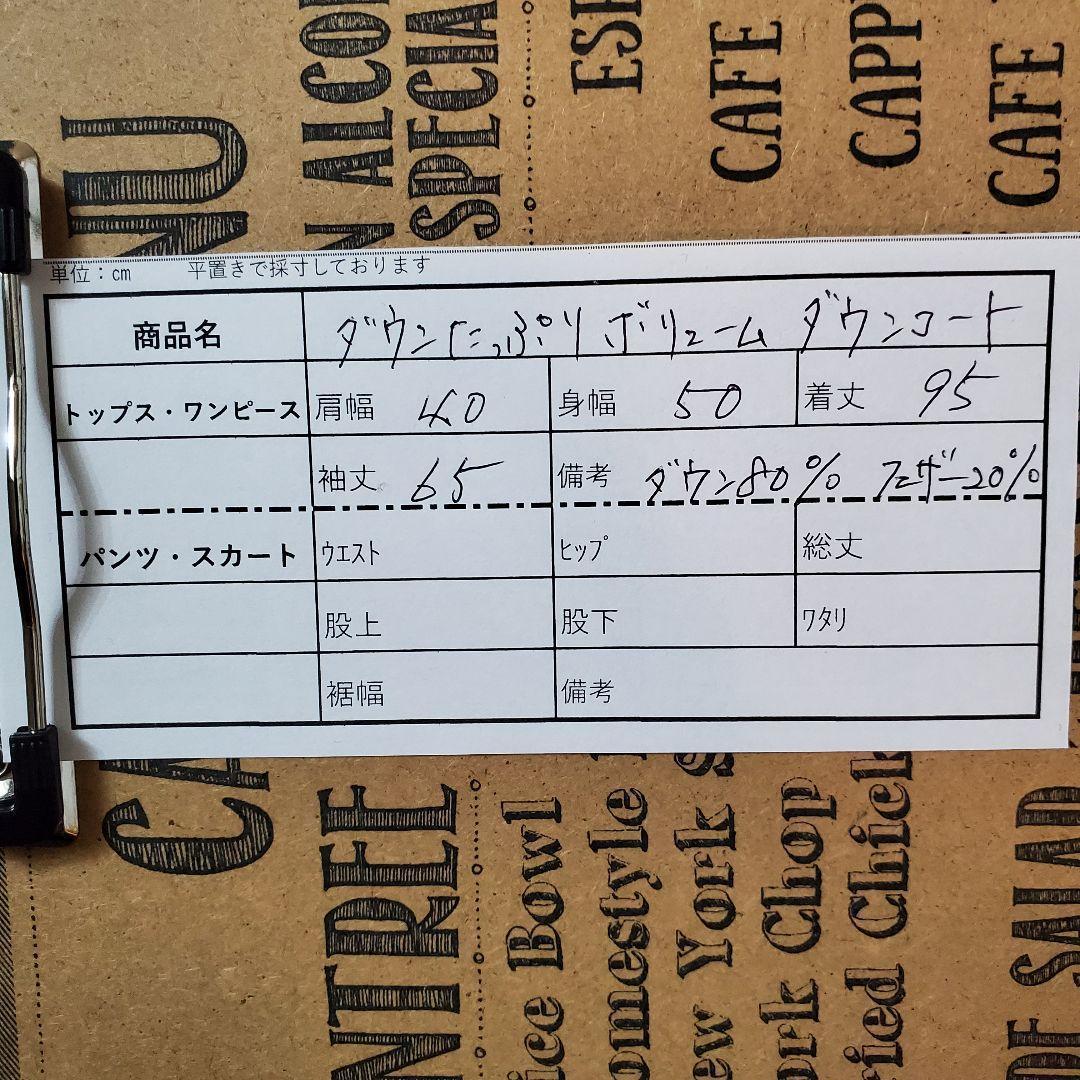 単位：cm 平置きで採寸しております
商品名 ダウンたっぷり ボリューム ダウンコート
トップス・ワンピース 肩幅 40 身幅 50 着丈 95
袖丈 65 備考 ダウン80% フェザー20%
パンツ・スカート ｳｴｽﾄ ﾋｯﾌﾟ 総丈
股上 股下 ﾜﾀﾘ
裾幅 備考
NU
N ALCO
SPECIA
CAFE
CAPP
CAFE
NTREE
ice Bowl
omestyle
ew York S
ork Chop
ried Chick
OF SALAD